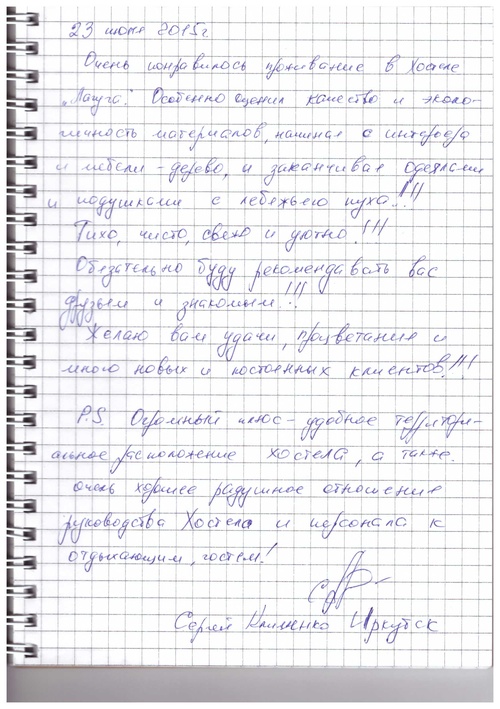 23 июня 2015г.
Очень понравилось проживание в Хостеле
"Лагуга". Особенно оценил качество и эколо-
гичность материалов, начиная с интерьера
и мебели - дерево, и заканчивая одеялами
и подушками с лебяжьего пуха..!!!
Тихо, чисто, свежо и уютно!!!
Обязательно буду рекомендовать вас
друзьям и знакомым..!!
Желаю вам удачи, процветания и
много новых и постоянных клиентов!!!
P.S. Огромный плюс - удобное территори-
альное расположение хостела, а также
очень хорошее радушное отношение
руководства Хостела и персонала к
отдыхающим, гостям!
Сергей Клименко Иркутск